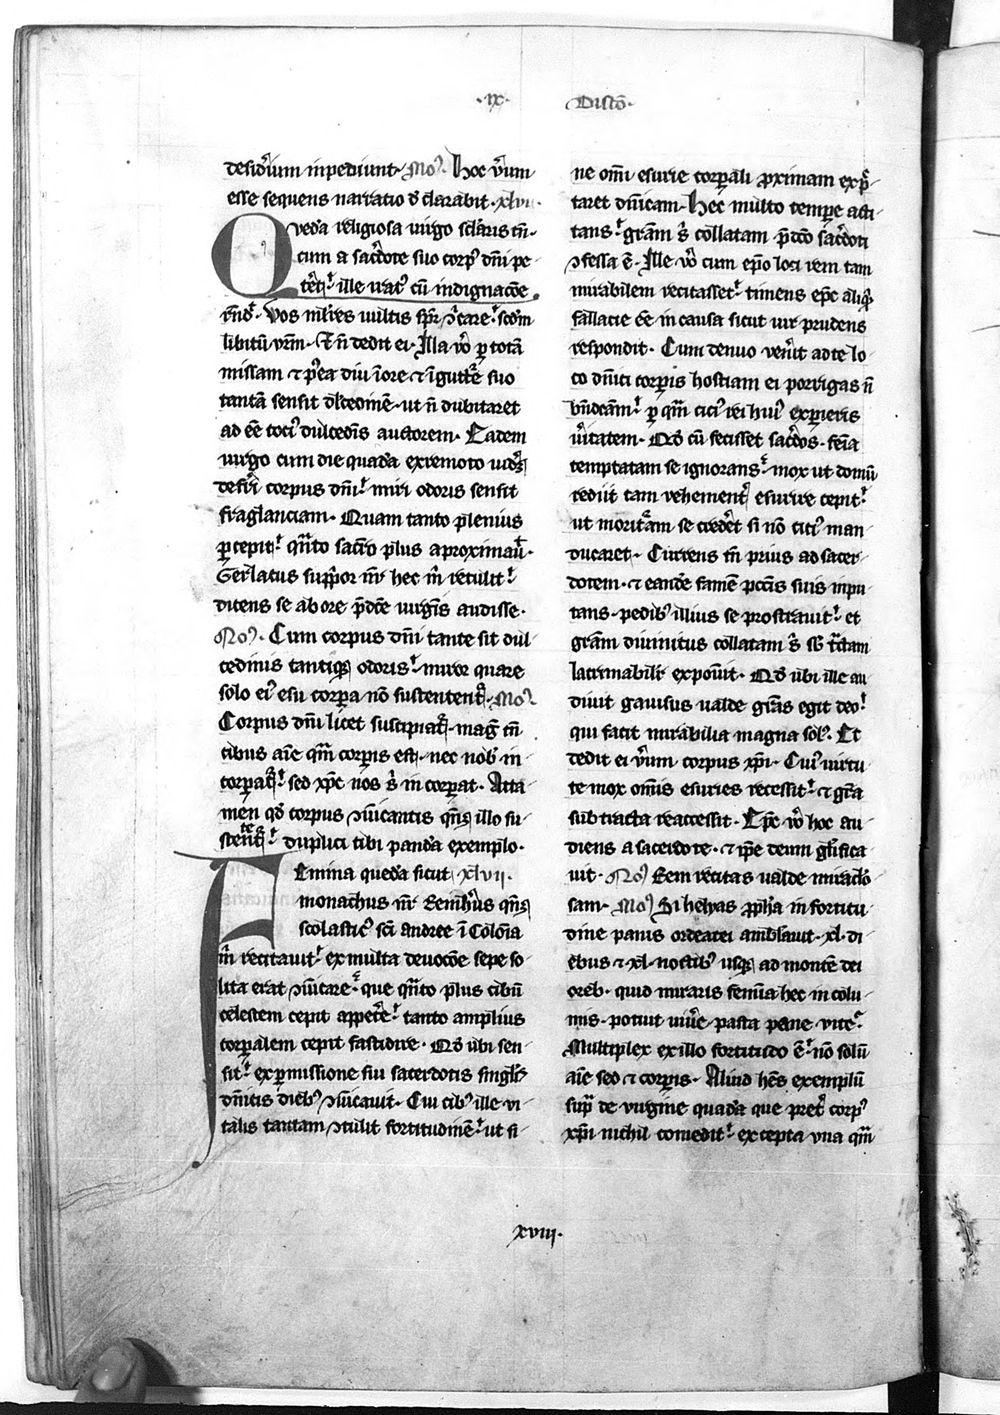 ·ix· Disto·
desid'ium inpediunt· No'. hoc v'um
esse sequens narratio d'clarabit· xlvi·
Queda religiosa uirgo sclaris tn̄·
cum a sac'dote suo corp' dn̄i pe-
t'et' ille irat' cū indignacōe
rn̄d'. Vos ml'ies uultis sp̄r ↄ̄icare' scdm
libitū vrm̄· Et n̄ dedit ei· Illa v̊ p totā
missam ⁊ p'ea diu ī ore ⁊ ī gutt'e suo
tantā sensit dl'cedinē· ut n̄ dubitaret
ad eē toci' dulcedīs auctorem· Eadem
uirgo cum die quada ex remoto uidꝫ
defr̄i corpus dn̄i' miri odoris sensit
fraglanciam· Quam tanto plenius
pcepit' qn̄to sac'o plus aproximau̅·
Gerlacus supp'or nr̄ hec m̄ retulit'
dicens se ab ore p̄dc̄e uirgīs audisse·
No'. Cum corpus dn̄i tante sit dul-
cedinis tantiqꝫ odoris' miror quare
solo ei' esu corpa nō sustentent'· Mo'
Corpus dn̄i licet suscipiat'· mag' tn̄
cibus aīe qm̄ corpis est· nec nob' in-
corpat'' sed xp̄c nos s' incorpat· Atta-
men qd' corpus ↄ̄micantis qn̄qꝫ illo su-
stentet'' duplici tibi panda exemplo·
Emina queda sicut xlvii·
monachus nr̄ Bernh'us qn̄qꝫ
scolastic' sc̄i andree ī Colōia
m̄ recitauit' ex multa deuocōe sepe so-
lita erat ↄ̄icare' que qn̄to plus cibū
celestem cepit appet'e' tanto amplius
corpalem cepit fastidire· Qd' ubi sen-
sit' ex pmissione sui sacerdotis singl'is
dn̄icis dieb' ↄ̄icauit· Cui cib' ille vi-
talis tantam ↄtulit fortitudinē' ut si-
ne om̄i esurie corpali pximam exp̄-
taret dn̄icam· Hec multo tempe acti-
tans' gram̄ s' collatam p̄dc̄o sac'doti
ↄfessa ē· Ille v̊ cum epō loci rem tam
mirabilem recitasset' timens ep̄c aliq'd
fallacie eē in causa sicut uir prudens
respondit· Cum denuo ven'it ad te lo-
co dn̄ici corpis hostiam ei porrigas n̄
bn̄dcām' p qm̄ citi' rei hui' experieris
v'itatem· Qd' cū fecisset sac'dos· feīa
temptatam se ignorans' mox ut domū
rediit tam vehement' esurire cepit'
ut moritam se cred'et si nō citi' man-
ducaret· Currens tn̄ prius ad sacer-
dotem· ⁊ eandē famē pctīs suis inpu-
tans· pedib' illius se prostrauit' et
gram̄ diuinitus collatam s' sb't'ctam
lacrimabilit' exposuit· Qd' ubi ille au-
diuit gauisus ualde gras egit deo'
qui facit mirabilia magna sol'. Et
dedit ei v'um corpus xp̄i· Cui' uirtu-
te mox omīs esuries recessit' ⁊ gra
subtracta reaccessit· Ep̄c v̊ hoc au-
diens a sacerdote· ⁊ ip̄e deum gl'ifica-
uit· No' Rem recitas ualde miraclo-
sam· Mo' Si helyas pph'a in fortitu-
dine panis ordeacei ambl'auit· xl· di-
ebus ⁊ xl· noctib' usqꝫ ad montē dei
oreb· quid miraris femīa hec in colu-
mis· potuit uiu'e pasta pane vite'
Multiplex ex illo fortitudo ē' nō solū
aīe sed ⁊ corpis· Aliud hēs exemplū
sup̄ de virgine quada que pret' corp'
xp̄i nichil comedit' excepta vna qm̄
xviii·